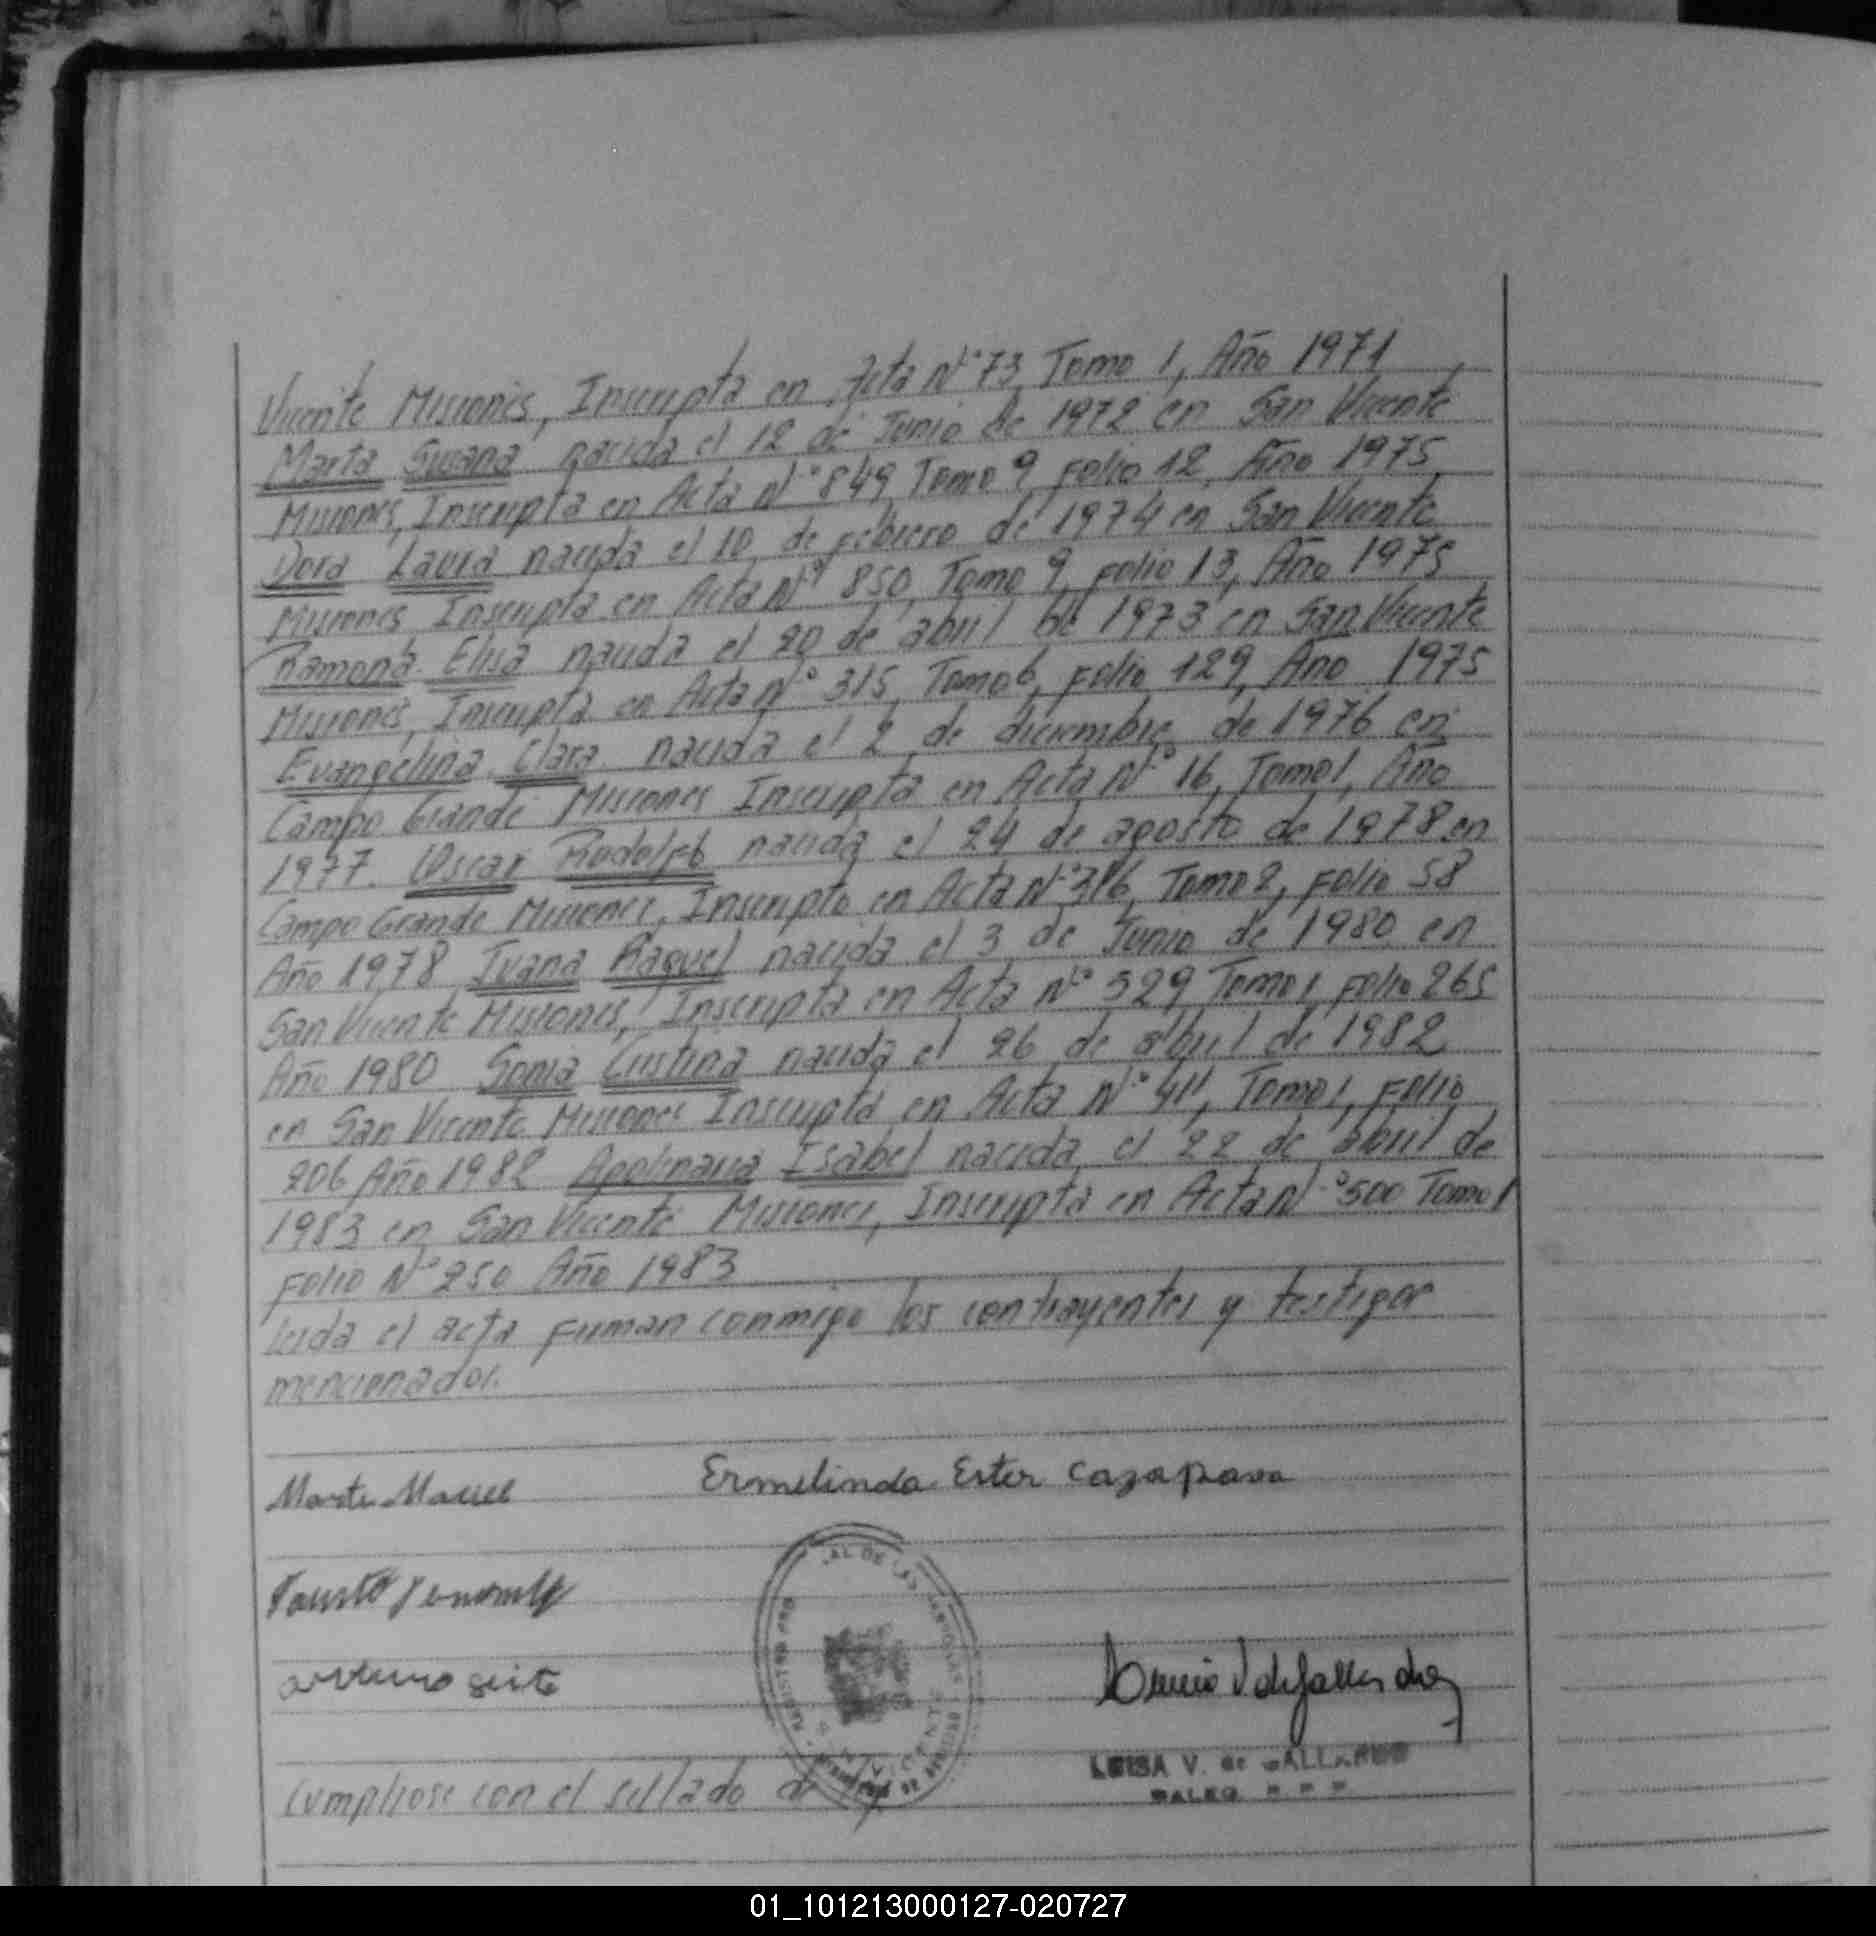 Vicente Misiones, Inscripta en Acta N° 73 Tomo 1, Año 1971
Marta Susana nacida el 12 de Junio de 1972 en San Vicente
Misiones, Inscripta en Acta N° 849 Tomo 9 Folio 12, Año 1975
Dora Laura nacida el 10 de Febrero de 1974 en San Vicente
Misiones Inscripta en Acta N° 850, Tomo 9, Folio 13, Año 1975
Ramona Elisa nacida el 20 de abril de 1973 en San Vicente
Misiones, Inscripta en Acta N° 315, Tomo 6, Folio 129, Año 1975
Evangelina Clara nacida el 2 de diciembre de 1976 en
Campo Grande Misiones Inscripta en Acta N° 16, Tomo 1, Año
1977. Oscar Rodolfo nacida el 24 de agosto de 1978 en
Campo Grande Misiones, Inscripto en Acta N° 316, Tomo 2, Folio 58
Año 1978 Ivana Raquel nacida el 3 de Junio de 1980 en
San Vicente Misiones, Inscripta en Acta N° 529 Tomo 1 Folio 265
Año 1980 Sonia Cristina nacida el 26 de abril de 1982
en San Vicente Misiones Inscripta en Acta N° 411, Tomo 1, Folio
206 Año 1982 Apolinaria Isabel nacida el 22 de abril de
1983 en San Vicente Misiones, Inscripta en Acta N° 500 Tomo 1
Folio N° 250 Año 1983
leida el acta Firman conmigo los contrayentes y testigos
mencionados.
Ermelinda Ester Cazapava
Fausto
LUISA V. de GALLARDO
Cumpliose con el sellado de ley
01_101213000127-020727